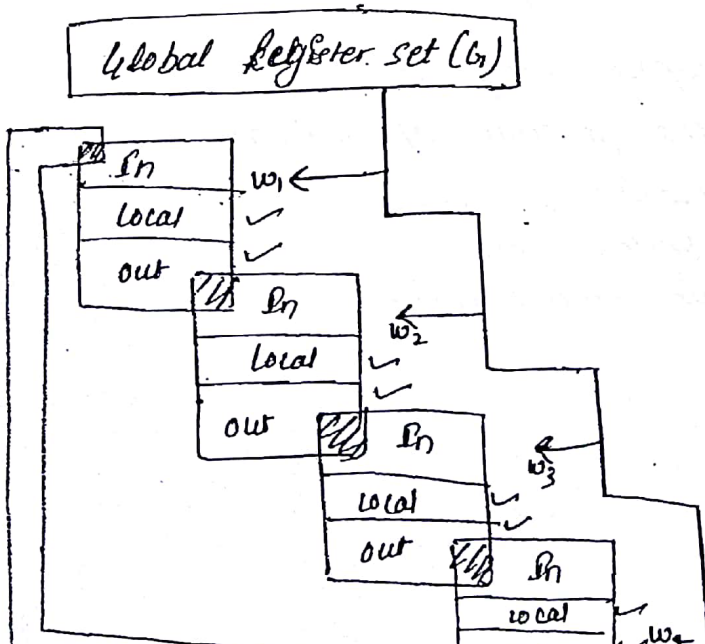 Global Register set (G)
In
w1
Local
out
In
w2
Local
out
In
w3
Local
out
In
Local
w4